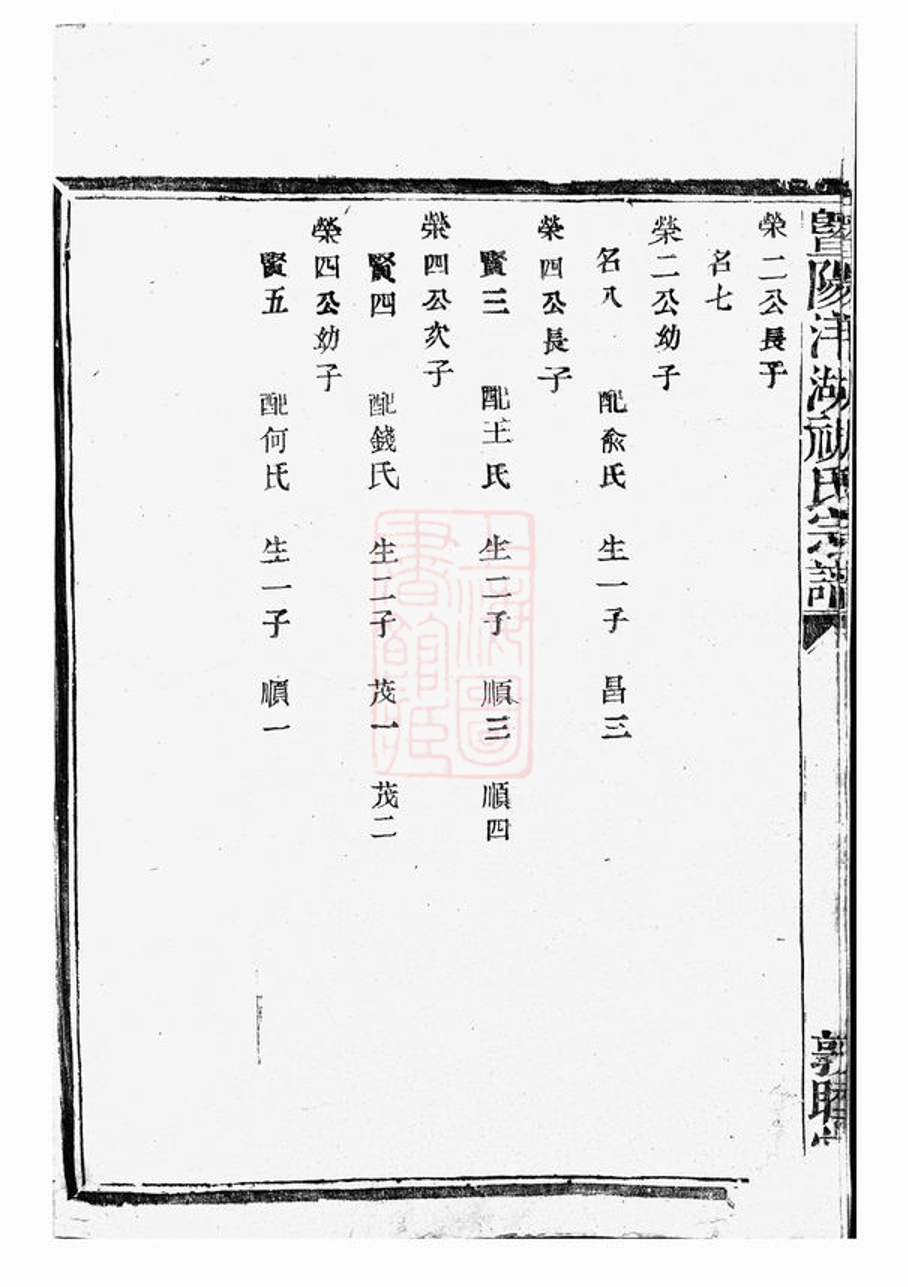 暨陽洋湖祝氏宗譜
敦睦堂
榮二公長子
名七
榮二公幼子
名八 配俞氏 生一子 昌三
榮四公長子
賢三 配王氏 生二子 順三 順四
榮四公次子
賢四 配錢氏 生二子 茂一 茂二
榮四公幼子
賢五 配何氏 生一子 順一
上海圖
書館藏